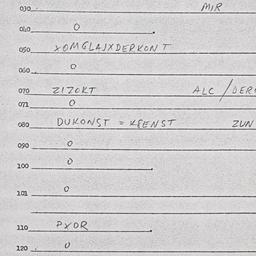 030 MIR
040 O
050 XOMGLAJXDERKONT
060 O
070 ZIZOKT ALC / DER
071 O
080 DUKONST = KFENST ZUN
090 O
100 O
101 O
110 PXOR
120 O